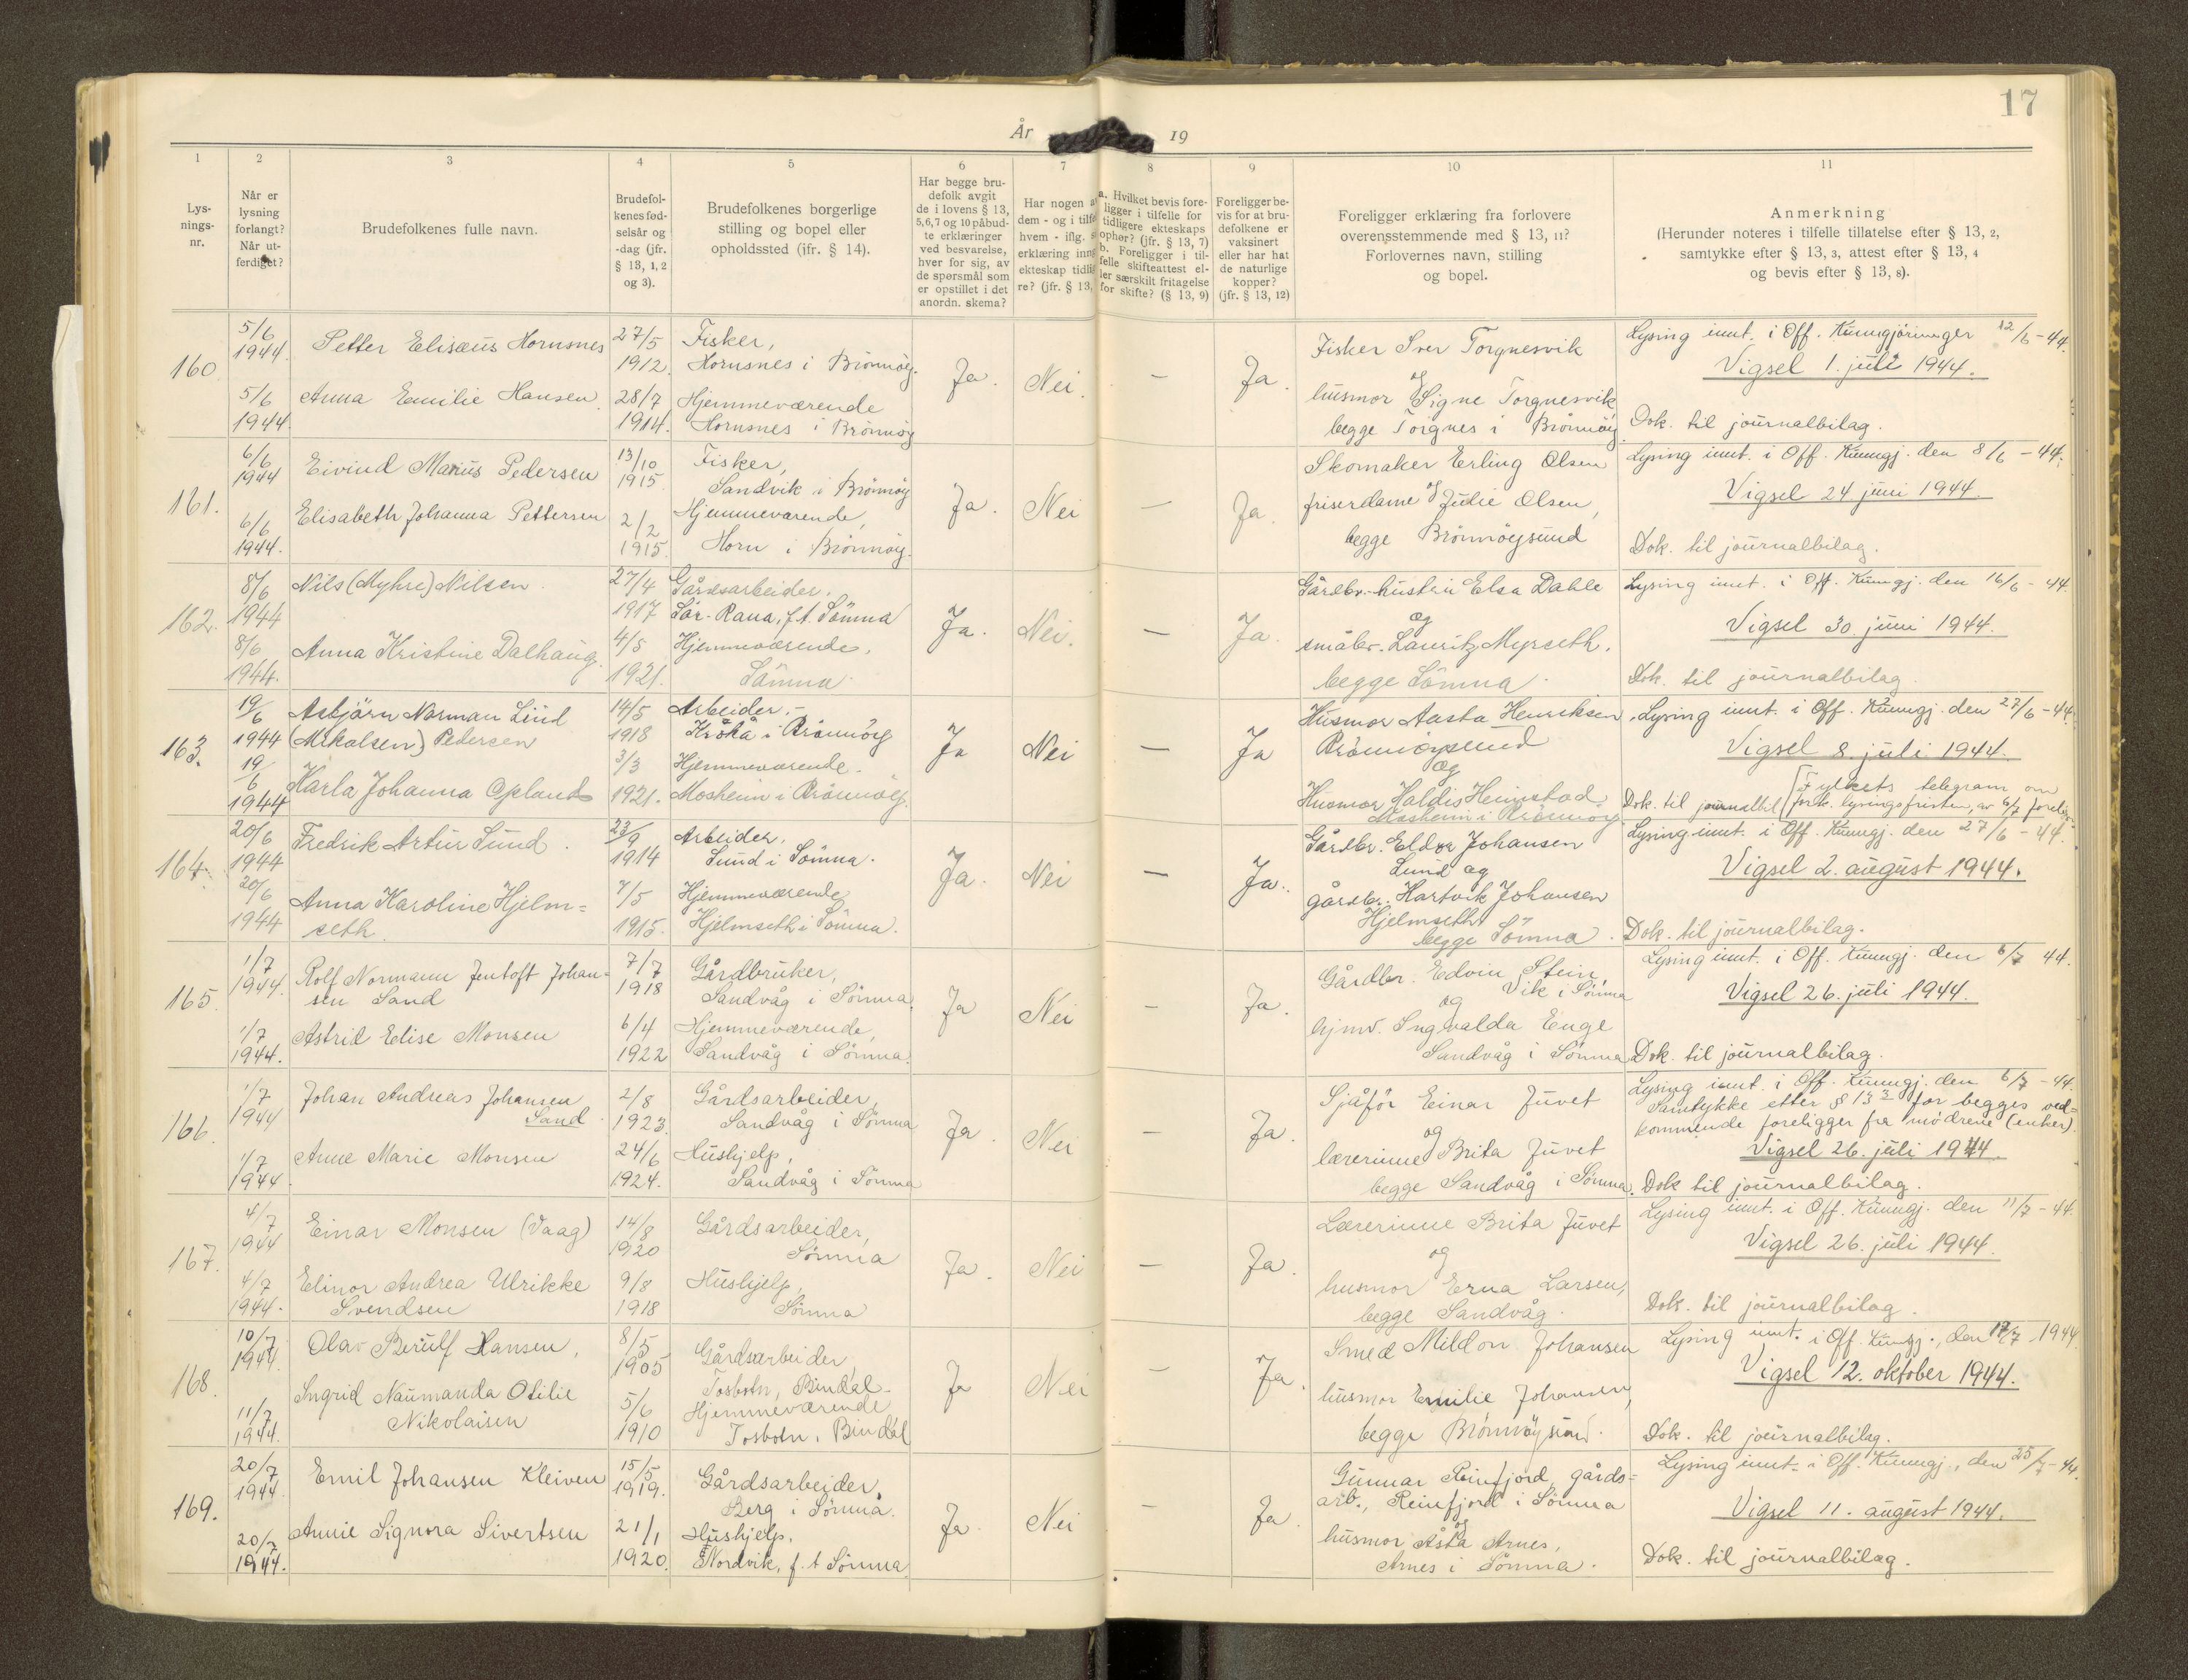 17
År 19
1 2 3 4 5 6 7 8 9 10 11
Lys-
nings-
nr.
Når er
lysning
forlangt?
Når ut-
ferdiget?
Brudefolkenes fulle navn.
Brudefol-
kenes fød-
selsår og
-dag (jfr.
§ 13, 1, 2
og 3).
Brudefolkenes borgerlige
stilling og bopel eller
opholdssted (ifr. § 14).
Har begge bru-
defolk avgit
de i lovens § 13,
5,6,7 og 10 påbud-
te erklæringer
ved besvarelse,
hver for sig, av
de spørsmål som
er opstillet i det
anordn. skema?
Har nogen a
dem - og i tilfe
hvem - iflg.
erklæring inng
ekteskap tidlig
re? (jfr. § 13,
a. Hvilket bevis fore-
ligger i tilfelle for
tidligere ekteskaps
ophør? (jfr. § 13, 7)
b. Foreligger i til-
felle skifteattest el-
ler særskilt fritagelse
for skifte? (§ 13, 9)
Foreligger be-
vis for at bru-
defolkene er
vaksinert
eller har hat
de naturlige
kopper?
(jfr. § 13, 12)
Foreligger erklæring fra forlovere
overensstemmende med § 13, 11?
Forlovernes navn, stilling
og bopel.
Anmerkning
(Herunder noteres i tilfelle tillatelse efter § 13, 2,
samtykke efter § 13, 3, attest efter § 13, 4
og bevis efter § 13, 8).
160
5/6
1944.
Petter Elisæus Hornsnes
27/5
1912.
Fisker,
Hornsnes i Brönnöy.
5/6
1944
Anna Emilie Hansen
28/7
1914.
Hjemmeværende
Hornsnes i Brönnöy
Ja.
Nei.
—
Ja.
Fisker Iver Torgnesvik
og
husmor Signe Torgnesvik
begge Torgnes i Brönnöy.
Lysing innt. i Off. Kunngjöringer 12/6-44.
Vigsel 1. juli 1944.
Dok. til journalbilag.
161.
6/6
1944
Eivind Marius Pedersen
13/10
1915
Fisker,
Sandvik i Brönnöy
6/6
1944.
Elisabeth Johanna Pettersen
2/2
1915.
Hjemmeværende,
Horn i Brönnöy.
Ja.
Nei
—
Ja.
Skomaker Erling Olsen
og
friserdame Julie Olsen,
begge Brönnöysund
Lysing innt. i Off. Kunngj. den 8/6-44.
Vigsel 24 juni 1944.
Dok. til journalbilag.
162.
8/6
1944
Nils (Myhre) Nilsen.
27/4
1917
Gårdsarbeider.
Sör-Rana, f.t. Sömna
8/6
1944.
Anna Kristine Dalhaug.
4/5
1921.
Hjemmeværende.
Sömna
Ja.
Nei.
—
Ja.
Gårdbr.-hustru Elsa Dahle
og
småbr. Lauritz Myrseth.
begge Sömna.
Lysing innt. i Off. Kunngj. den 16/6-44.
Vigsel 30. juni 1944.
Dok. til journalbilag.
163.
19/6
1944
Asbjörn Norman Lind
(Mikalsen) Pedersen
14/5
1918
Arbeider.-
Kråkå i Brönnöy
19/6
1944
Karla Johanna Opland
3/3
1921.
Hjemmeværende.
Mosheim i Brönnöy.
Ja
Nei
—
Ja
Husmor Aasta Henriksen
Brönnöysund
og
Husmor Haldis Heimstad.
Mosheim i Brönnöy
Lysing innt. i Off. Kunngj. den 27/6-44.
Vigsel 8. juli 1944.
Dok. til journalbil. [Fylkets telegram om
fork. lysingsfristen, av 6/7 forelig.
164.
20/6
1944
Fredrik Artur Sund.
23/9
1914
Arbeider.
Sund i Sömna.
20/6
1944
Anna Karoline Hjelm=
seth.
7/5
1915.
Hjemmeværende
Hjelmseth i Sömna.
Ja.
Nei
—
Ja.
Gårdbr. Eldor Johansen
Sund og
gårdbr. Hartvik Johansen
Hjelmseth
begge Sömna.
Lysing innt. i Off. Kunngj. den 27/6-44.
Vigsel 2. august 1944.
Dok. til journalbilag.
165.
1/7
1944.
Rolf Normann Jentoft Johan=
sen Sand
7/7
1918
Gårdbruker,
Sandvåg i Sömna
1/7
1944.
Astrid Elise Monsen
6/4
1922
Hjemmeværende,
Sandvåg i Sömna.
Ja
Nei
—
Ja.
Gårdbr. Edvin Stein,
Vik i Sömna
og
hjmv. Ingvalda Enge
Sandvåg i Sömna
Lysing innt. i Off. Kunngj. den 6/7 44.
Vigsel 26. juli 1944.
Dok. til journalbilag.
166.
1/7
1944
Johan Andreas Johansen
Sand.
2/8
1923.
Gårdsarbeider,
Sandvåg i Sömna
1/7
1944
Anne Marie Monsen
24/6
1924.
Hushjelp,
Sandvåg i Sömna
Ja.
Nei
—
Ja.
Sjåför Einar Juvet
og
lærerinne Brita Juvet
begge Sandvåg i Sömna.
Lysing innt. i Off. Kunngj. den 6/7-44.
Samtykke etter § 13 3 for begges ved=
kommende foreligger fra mödrene (enker).
Vigsel 26. juli 1944.
Dok til journalbilag.
167.
4/7
1944
Einar Monsen (Vaag)
14/8
1920
Gårdsarbeider,
Sömna
4/7
1944.
Elinor Andrea Ulrikke
Svendsen
9/8
1918
Hushjelp,
Sömna
Ja.
Nei
—
Ja.
Lærerinne Brita Juvet
og
husmor Erna Larsen,
begge Sandvåg.
Lysing innt. i Off. Kunngj. den 11/7-44.
Vigsel 26. juli 1944.
Dok. til journalbilag.
168.
10/7
1944.
Olav Berulf Hansen,
8/5
1905
Gårdsarbeider
Tosbotn, Bindal.
11/7
1944.
Ingrid Naumanda Otilie
Nikolaisen
5/6
1910
Hjemmeværende
Tosbotn, Bindal
Ja
Nei
—
Ja.
Smed Mildon Johansen
husmor Emilie Johansen,
begge Brönnöysund.
Lysing innt. i Off. Kunngj., den 17/7 1944
Vigsel 12. oktober 1944.
Dok. til journalbilag.
169.
20/7
1944
Emil Johansen Kleiven
15/5
1919.
Gårdsarbeider,
Berg i Sömna.
20/7
1944.
Annie Signora Sivertsen
21/1
1920.
Hushjelp.
Nordvik, f.t Sömna.
Ja.
Nei
—
Ja.
Gunnar Reinfjord, gårds=
arb., Reinfjord i Sömna
og
husmor Åsta Arnes,
Arnes i Sömna.
Lysing innt. i Off. Kunngj., den 25/7-44.
Vigsel 11. august 1944.
Dok. til journalbilag.